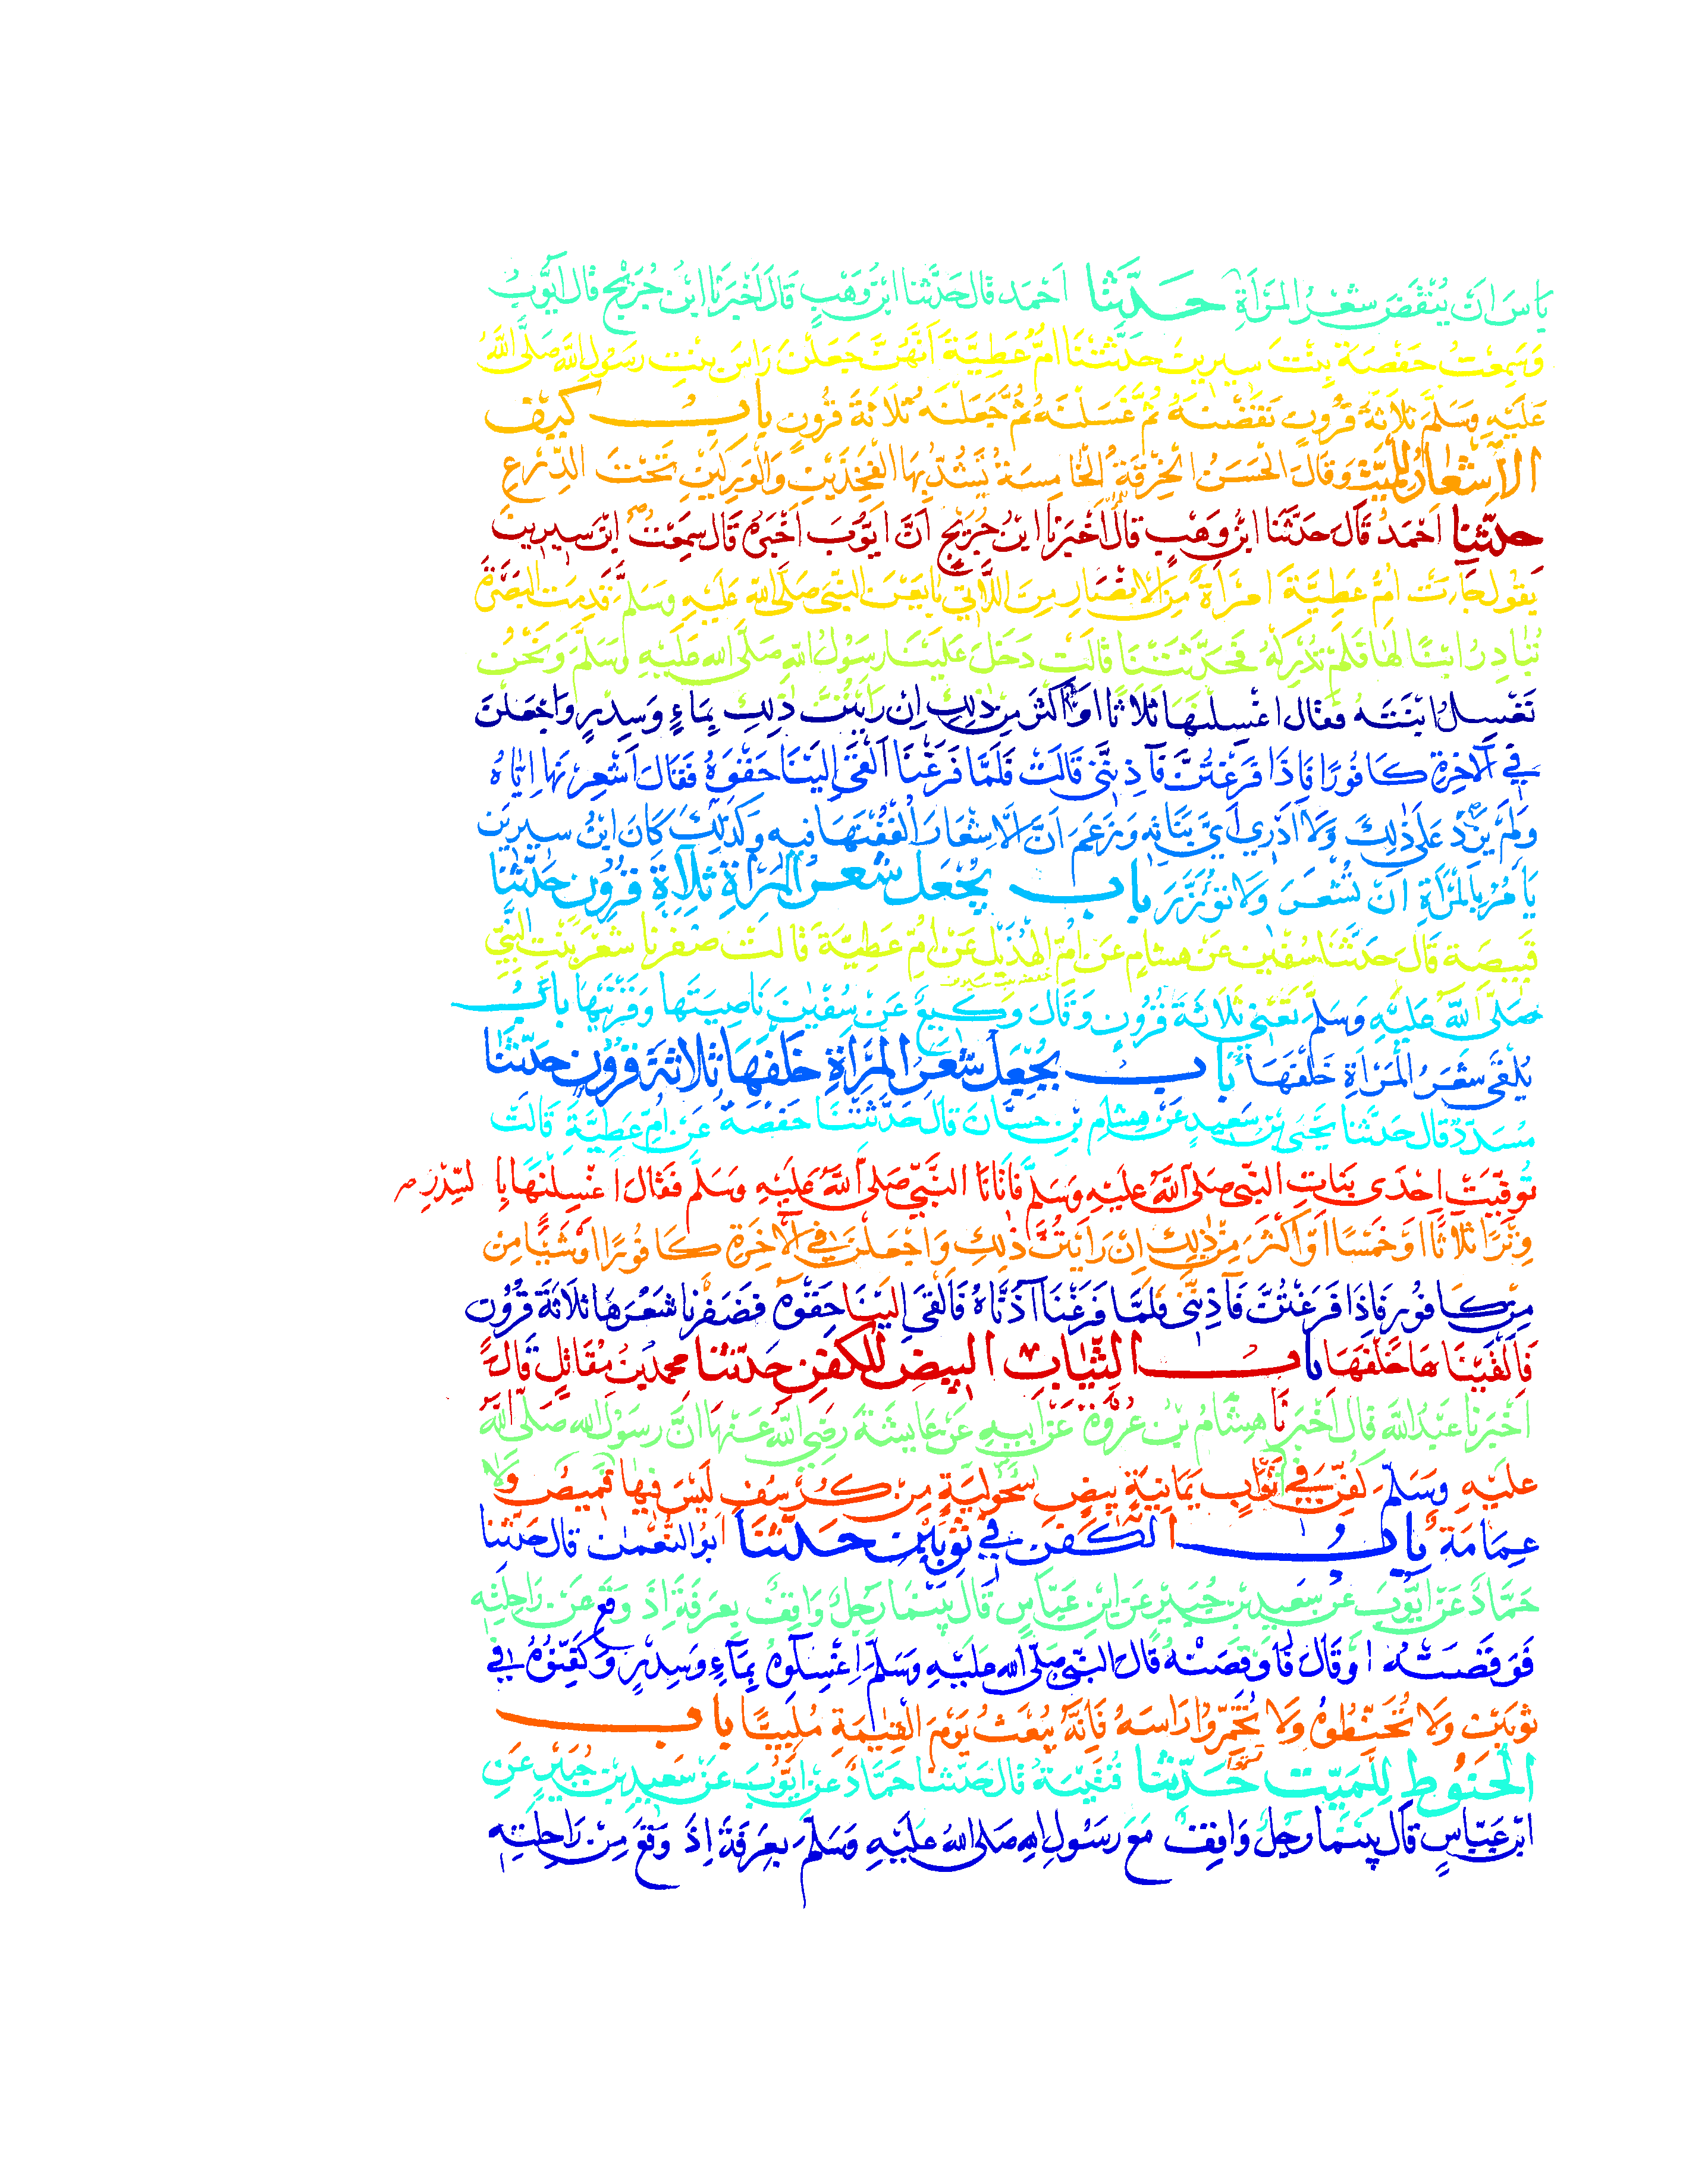 بَاسَ ان يُنْقَضَ شَعْرُ المَرْأَةِ حَدَّثَنَا اَحْمَد قال حَدَّثَنا ابنُ وَهْبٍ قَالَ اَخْبَرَنَا ابنُ جُرَيْجٍ قال اَيُّوبُ
وَسَمِعْتُ حَفْصَةَ بِنْتَ سيرينَ حَدَّثَتْنَا امُّ عَطِيَّةَ اَنَّهُنَّ جَعَلْنَ رَاسَ بِنْتِ رسَوُلِ اللَّهِ صَلَّى اللَّهُ
عَلَيْهِ وَسَلَّمَ ثَلَاثةَ قُرُونٍ نَقَضْنَهُ ثُمَّ غَسَلْنَهُ ثُمَّ جَعَلْنَه ثَلَاثَةَ قُرُونٍ بابُ كَيْفَ
الاِشْعَارُ لِلْمَيِّتْ وَقَالَ الحَسَنُ الخِرْقَةُ الخَامِسَةُ يَشُدُّ بِهَا الفَخِذَيْنِ وَالْوَرِكَيْنِ تَحْتَ الدِّرْعِ
حدثنا اَحْمَدُ قَالَ حَدَّثَنَا ابْنُ وَهْبٍ قالَ اَخْبَرَنا ابنُ جُرَيْجٍ انَّ ايُّوبَ اَخْبَرَهُ قَالَ سَمِعْتُ ابْنَ سِيرِينَ
يَقُولُ جَاءَتْ امُّ عَطِيَّةَ امْرَأةٌ مِنَ الانْصَارِ مِنَ اللَّاتِي بَايَعْنَ النبيَّ صَلَّى اللَّه عَلَيْهِ وَسَلَّمَ قَدِمَتِ البَصْرَةَ
تُبَادِرُ ابْنًا لَهَا فَلَمْ تُدْرِكْهُ فَحَدَّثَتْنَا قَالَتْ دَخَلَ عَلَيْنَا رَسُولُ اللهِ صَلَّى الله عَلَيْهِ وَسَلَّمَ وَنَحْنُ
نَغْسِلُ ابْنَتَهُ فقَال اغْسِلْنَهَا ثَلَاثًا اَوْ اَكْثَرَ مِنْ ذلِكِ اِنْ رَايْتُنَّ ذلِكِ بِمَاءٍ وَسِدْرٍ وَاجْعَلْنَ
فِي الآخِرَةِ كَافُورًا فَاِذَا فَرَغْتُنَّ فَآذِنَّنِي قَالَتْ فَلَمَّا فَرَغْنَا اَلْقَى اِلَيْنَا حِقْوَهُ فَقَالَ اَشْعِرْنَهَا اِيَّاهُ
وَلَمْ يَزِدْ عَلَى ذلِكَ وَلَا اَدْرِي اَيُّ بَنَاتِهِ وَزَعَمَ اَنَّ الاِشْعَارَ الْفُفْنَهَا فِيهِ وَكَذلِكَ كَانَ ابْنُ سيرِينَ
يَأمُرُ بِالْمَرْأةِ انْ تُشْعَرَ وَلَا تُؤْزَرَ بابُ يُجْعَلُ شَعَرُ المَرْأةِ ثَلَاثَةَ قُرُونٍ حَدَّثَنا
قَبِيصَة قَالَ حَدَّثَنَا سُفْيَنُ عَنْ هِشَامٍ عَنْ اُمِّ الهُذَيْلِ عَنْ اُمِّ عَطِيَّةَ قَالَتْ ضَفَرْنَا شَعْرَ بِنْتِ النَّبِيِّ
صَلَّى اللَّه عَلَيْهِ وَسَلَّمَ تَعْنِي ثَلَاثَةَ قُرُونٍ وَقَالَ وَكِيعٌ عَنْ سُفْيَنَ نَاصِيَتَهَا وَقَرْنَيْهَا بابُ
يُلْقَى شَعَرُ المَرْاةِ خَلْفَهَا بابُ يُجْعَلُ شَعَرُ المَرْاَةِ خَلْفَهَا ثَلَاثَةَ قُرُونٍ حَدَّثَنَا
مُسَدَّدٌ قال حَدَّثنا يَحْيَى بْنُ سَعِيدٍ عَنْ هِشَامِ بْنِ حَسَّانَ قَالَ حَدَّثَتْنَا حَفْصَةُ عَنْ اُمِّ عَطِيَّةَ قَالَتْ
تُوفِّيَتْ اِحْدَى بَنَاتِ النبيِّ صَلَّى اللَّهُ عَلَيْهِ وَسَلَّمَ فَاَتَانَا النَّبِيُّ صَلَّى اللَّهُ عَلَيْهِ وَسَلَّمَ فَقَالَ اغْسِلْنَهَا بِالسِّدْرِ
وِتْرًا ثَلَاثًا اَوْ خَمْسًا اَوْ اَكْثَرَ مِنْ ذلِكِ اِنْ رَايْتُنَّ ذلِكِ وَاجْعَلْنَ فِي الآخِرَةِ كَافُورًا اوْ شَيْئًا مِنْ
مِنْ كَافُورٍ فَاِذَا فَرَغْتُنَّ فَآذِنَّنِي فَلَمَّا فَرَغْنَا آذَنَّاهُ فَاَلْقَى اِلَيْنَا حِقْوَهُ فَضَفَرْنَا شَعْرَهَا ثَلَاثَةَ قُرُونٍ
فَالْقَيْنَاهَا خَلْفَهَا بابُ الثِّيَابِ البِيضِ لِلكَفَنِ حَدَّثَنا محمد بنُ مُقَاتِلٍ قَالَ
اَخْبَرَنَا عَبْدُ اللَّهِ قَالَ اَخْبَرَنَا هِشَامُ بْنُ عُرْوَةَ عَنْ اَبِيهِ عَنْ عَايِشَةَ رَضِيَ اللَّهُ عَنْهَا انَّ رسَوُلَ الله صَلَّى اللَّهُ
عليْهِ وَسَلَّمَ كُفِّنَ فِي اثْوَابٍ يَمَانِيَةٍ بِيضٍ سَحُولِيَّةٍ مِنْ كُرْسُفٍ لَيْسَ فِيهَا قَمِيصٌ وَلَا
عِمَامَة بابُ الكَفَنِ فِي ثَوْبَيْنِ حَدَّثَنَا ابوُ النُّعْمَنِ قَالَ حَدَّثَنَا
حَمَّادٌ عَنْ ايُّوبَ عَنْ سَعِيدِ بْنِ جُبَيْرٍ عَنِ ابْنِ عَبَّاسٍ قَالَ بَيْنَمَا رَجُلٌ وَاقِفٌ بِعَرَفَةَ اِذْ وَقَعَ عَنْ رَاحِلَتِهِ
فَوَقَصَتْهُ اوْ قَالَ فَاَوْقَصَتْهُ قَالَ النَّبِيُّ صَلَّى الله عَلَيْهِ وَسَلَّمَ اغْسِلُوهُ بِمَاءٍ وَسِدْرٍ وَكَفِّنُوهُ فِي
ثَوْبَيْنِ وَلَا تُحَنِّطُوهُ وَلَا تُخَمِّرُوا رَاسَهُ فَاِنَّهُ يُبْعَثُ يَوْمَ القِيَمَةِ مُلَبِّيًا بابُ
الحَنُوطِ لِلْمَيِّتِ حَدَّثَنا قُتَيْبَةُ قَالَ حَدَّثَنا حَمَّادٌ عَنْ ايُّوبَ عَنْ سَعِيدِ بْنِ جُبَيْرٍ عَنِ
ابْنِ عَبَّاسٍ قَالَ بَيْنَمَا رَجُلٌ وَاقِفٌ مَعَ رَسُولِ اللهِ صَلَّى اللهُ عَلَيْهِ وَسَلَّمَ بِعَرَفَةَ اِذْ وَقَعَ مِنْ رَاحِلَتِهِ